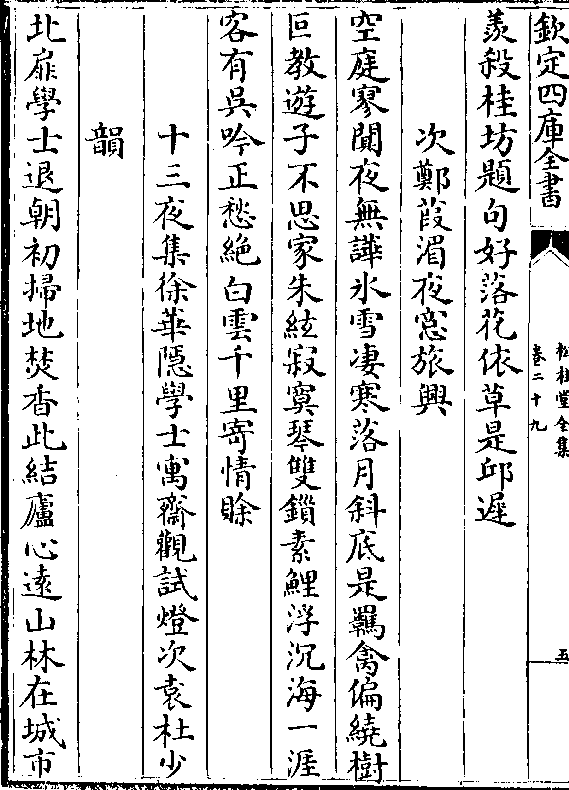 欽定四庫全書
松桂堂全集
卷二十九
五
羨殺桂坊題句好落花依草是邱遲
次鄭葭湄夜窓旅興
空庭寥闃夜無譁氷雪凄寒落月斜底是羈禽偏繞樹
叵教遊子不思家朱絃寂寞琴雙鎖素鯉浮沉海一涯
客有吳吟正愁絶白雲千里寄情賖
十三夜集徐華隱學士寓齋觀試燈次袁杜少
韻
北扉學士退朝初掃地焚香此結廬心遠山林在城市